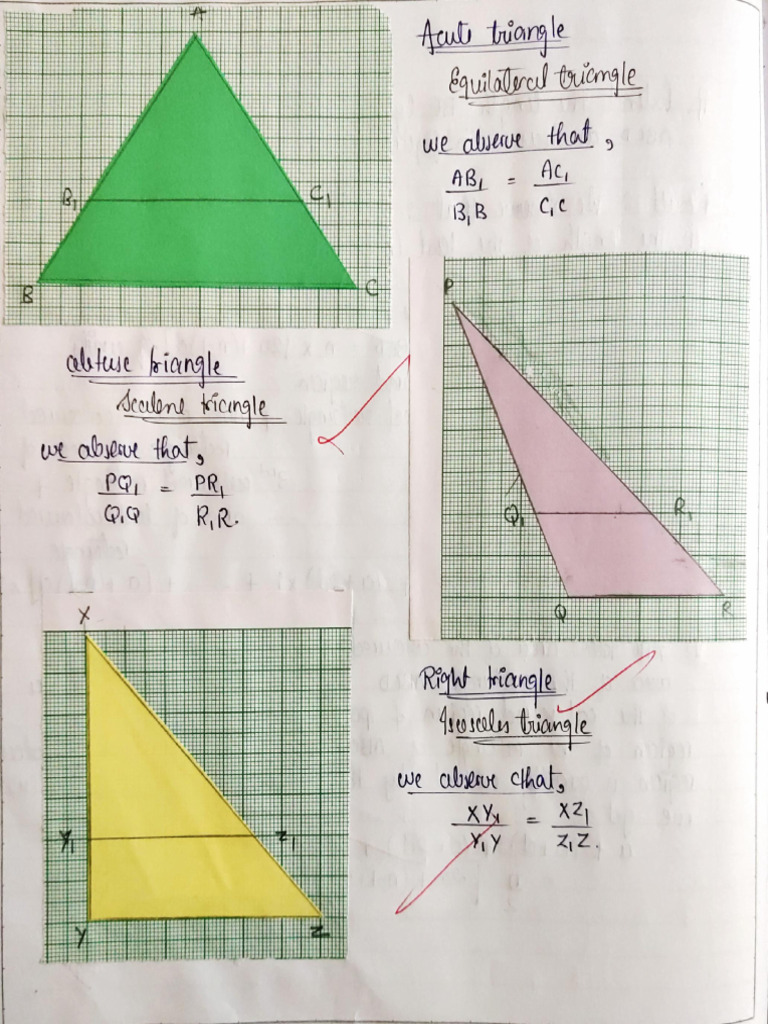 A
B₁
C₁
B
C
Acute triangle
Equilateral triangle
we observe that,
AB₁ = AC₁
B₁B C₁C
P
Q₁
R₁
Q
R
obtuse triangle
Scalene triangle
we observe that,
PQ₁ = PR₁
Q₁Q R₁R.
X
Y₁
Z₁
Y
Z
Right triangle
Isosceles triangle
we observe that,
XY₁ = XZ₁
Y₁Y Z₁Z.